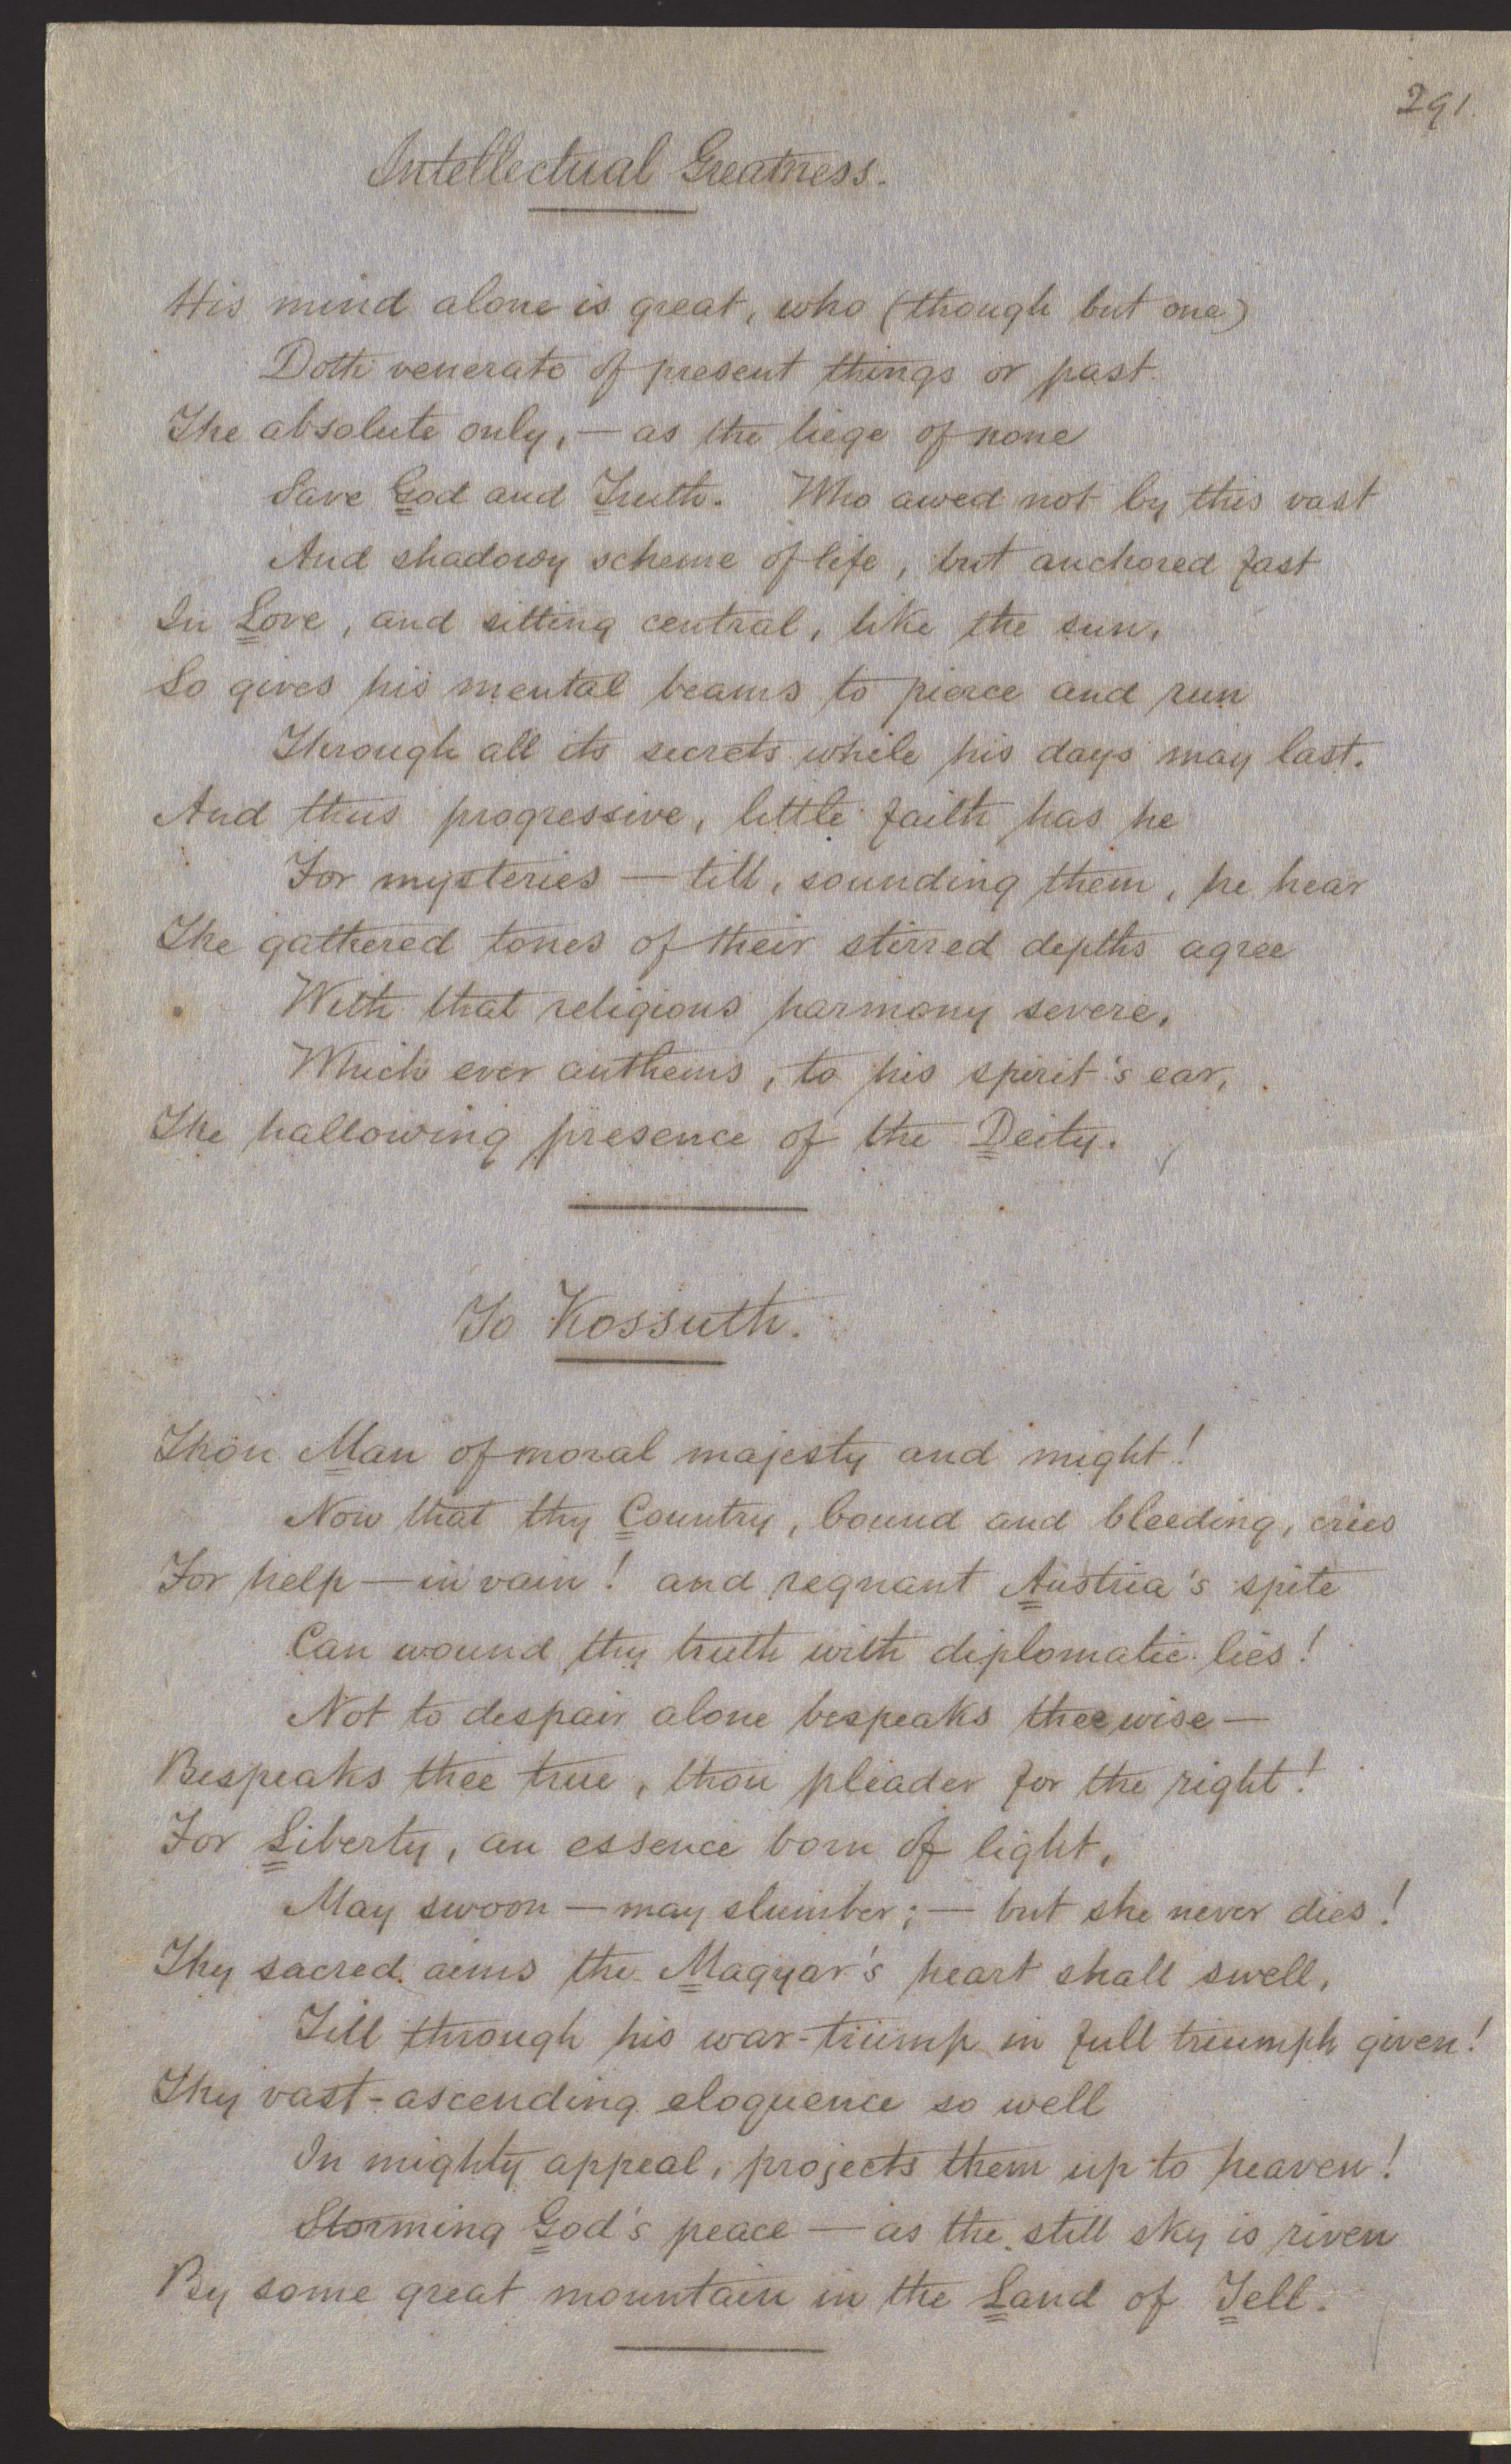 291.
Intellectual Greatness.
His mind alone is great, who (though but one)
Doth venerate of present things or past
The absolute only, — as the liege of none
Save God and Truth. Who awed not by this vast
And shadowy scheme of life, but anchored fast
In Love, and sitting central, like the sun,
So gives his mental beams to pierce and run
Through all its secrets while his days may last.
And thus progressive, little faith has he
For mysteries — till, sounding them, he hear
The gathered tones of their stirred depths agree
With that religious harmony severe,
Which ever anthems, to his spirit's ear,
The hallowing presence of the Deity.
To Kossuth.
Thou Man of moral majesty and might!
Now that thy Country, bound and bleeding, cries
For help — in vain! and regnant Austria's spite
Can wound thy truth with diplomatic lies!
Not to despair alone bespeaks thee wise —
Bespeaks thee true, thou pleader for the right!
For Liberty, an essence born of light,
May swoon — may slumber; — but she never dies!
Thy sacred aims the Magyar's heart shall swell,
Till through his war-trump in full triumph given!
Thy vast-ascending eloquence so well
In mighty appeal, projects them up to heaven!
Storming God's peace — as the still sky is riven
By some great mountain in the Land of Tell.